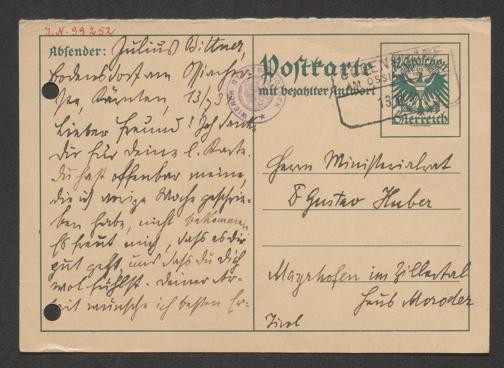 J.N. 99252
Absender: Julius Bittner,
Bodensdorf am Ossiacher-
see, Kärnten, 13/7 3
Lieber Freund! Ich danke
Dir für Deine l. Karte.
Du hast offenbar meine,
die ich vorige Woche geschrie-
ben habe, nicht bekommen.
Es freut mich, dass es dir
gut geht, und dass du dich
wohl fühlst. Deiner Ar-
beit wünsche ich besten Er-
Postkarte
mit bezahlter Antwort
Groschen
Österreich
AM OSSI
13
Herrn Ministerialrat
Dr Gustav Huber
Mayrhofen im Zillertal
Haus Moroder
Tirol